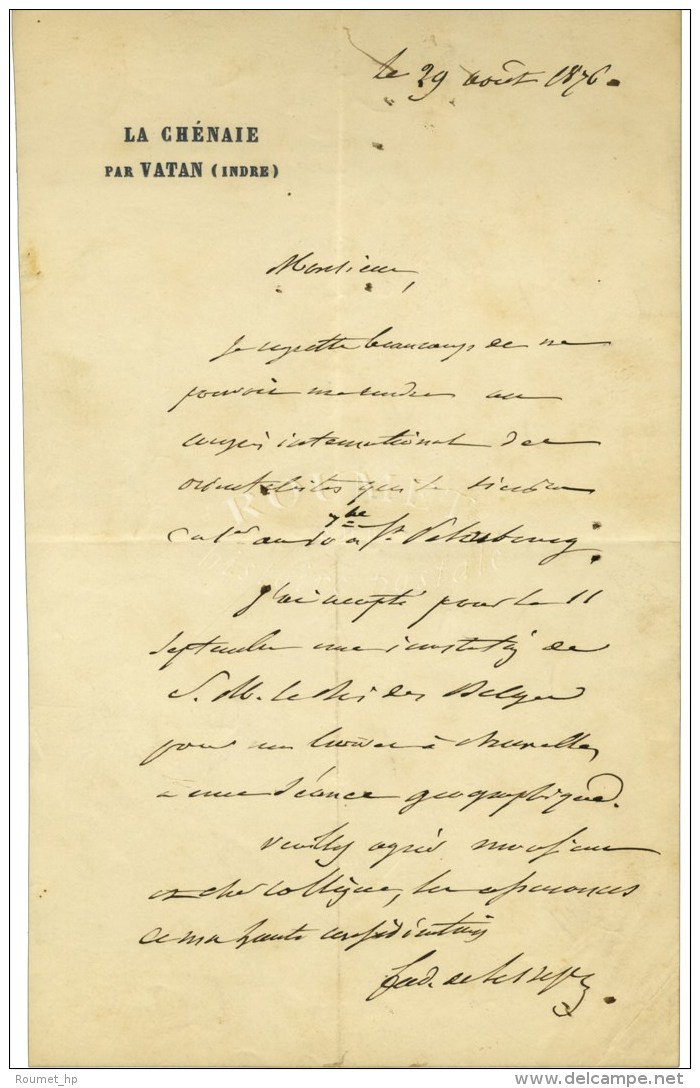 le 29 août 1876.
LA CHÉNAIE
PAR VATAN (INDRE)
Monsieur,
Je regrette beaucoup de ne
pouvoir me rendre au
congrès international des
orientalistes qui se tiendra
du 1er au 10 7bre à St Petersbourg.
J'ai accepté pour le 11
septembre une invitation de
S. M. le Roi des Belges
pour me trouver à Bruxelles
à une séance géographique.
Veuillez agréer monsieur
et cher collègue, les assurances
de ma haute considération
Ferd. de Lesseps
ROUMET
Roumet_hp
www.delcampe.net